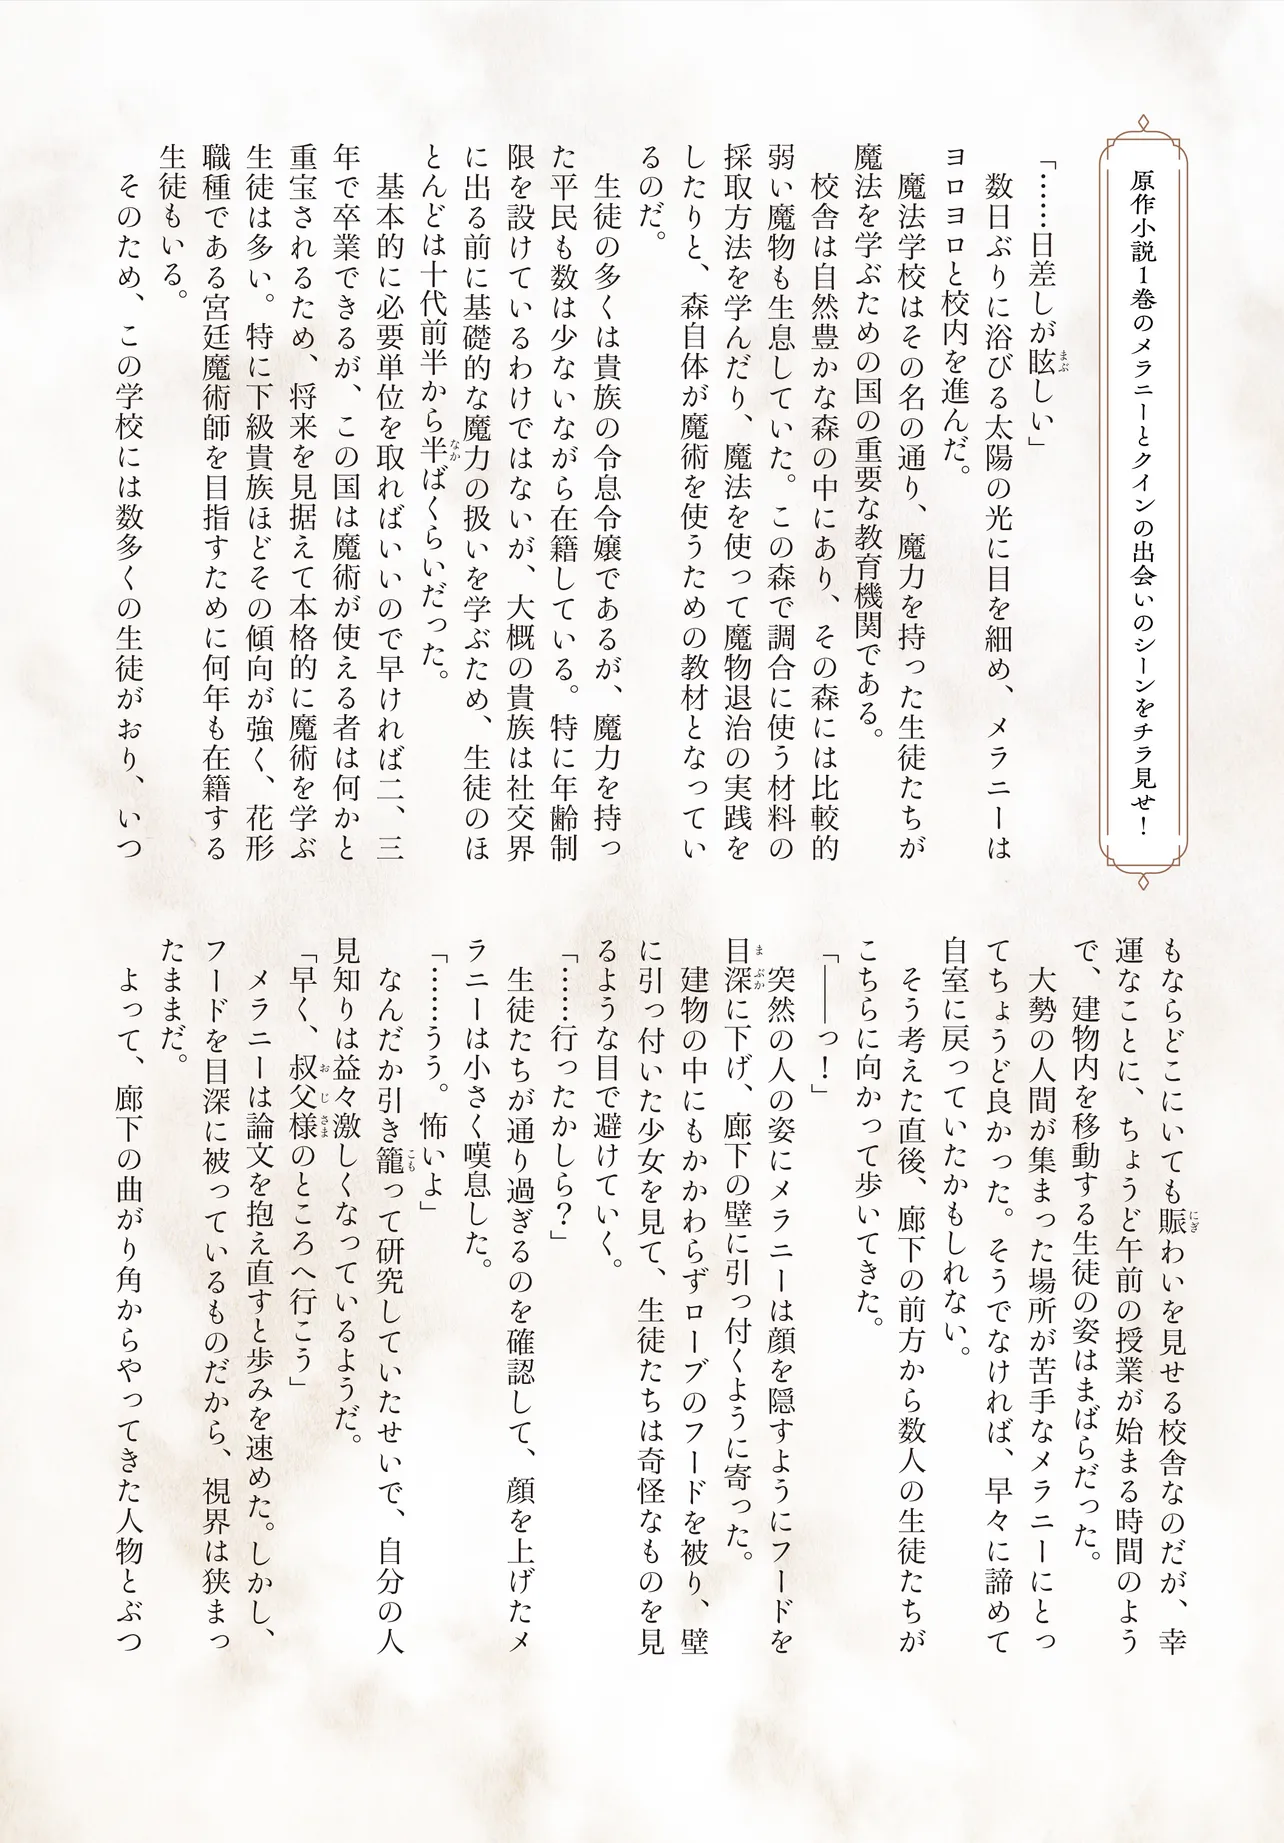 原作小説1巻のメラニーとクインの出会いのシーンをチラ見せ！
「……日差しが眩しい」
数日ぶりに浴びる太陽の光に目を細め、メラニーは
ヨロヨロと校内を進んだ。
魔法学校はその名の通り、魔力を持った生徒たちが
魔法を学ぶための国の重要な教育機関である。
校舎は自然豊かな森の中にあり、その森には比較的
弱い魔物も生息していた。この森で調合に使う材料の
採取方法を学んだり、魔法を使って魔物退治の実践を
したりと、森自体が魔術を使うための教材となってい
るのだ。
生徒の多くは貴族の令息令嬢であるが、魔力を持っ
た平民も数は少ないながら在籍している。特に年齢制
限を設けているわけではないが、大概の貴族は社交界
に出る前に基礎的な魔力の扱いを学ぶため、生徒のほ
とんどは十代前半から半ばくらいだった。
基本的に必要単位を取ればいいので早ければ二、三
年で卒業できるが、この国は魔術が使える者は何かと
重宝されるため、将来を見据えて本格的に魔術を学ぶ
生徒は多い。特に下級貴族ほどその傾向が強く、花形
職種である宮廷魔術師を目指すために何年も在籍する
生徒もいる。
そのため、この学校には数多くの生徒がおり、いつ
もならどこにいても賑わいを見せる校舎なのだが、幸
運なことに、ちょうど午前の授業が始まる時間のよう
で、建物内を移動する生徒の姿はまばらだった。
大勢の人間が集まった場所が苦手なメラニーにとっ
てちょうど良かった。そうでなければ、早々に諦めて
自室に戻っていたかもしれない。
そう考えた直後、廊下の前方から数人の生徒たちが
こちらに向かって歩いてきた。
「――っ！」
突然の人の姿にメラニーは顔を隠すようにフードを
目深に下げ、廊下の壁に引っ付くように寄った。
建物の中にもかかわらずローブのフードを被り、壁
に引っ付いた少女を見て、生徒たちは奇怪なものを見
るような目で避けていく。
「……行ったかしら？」
生徒たちが通り過ぎるのを確認して、顔を上げたメ
ラニーは小さく嘆息した。
「……うう。怖いよ」
なんだか引き籠って研究していたせいで、自分の人
見知りは益々激しくなっているようだ。
「早く、叔父様のところへ行こう」
メラニーは論文を抱え直すと歩みを速めた。しかし、
フードを目深に被っているものだから、視界は狭まっ
たままだ。
よって、廊下の曲がり角からやってきた人物とぶつ